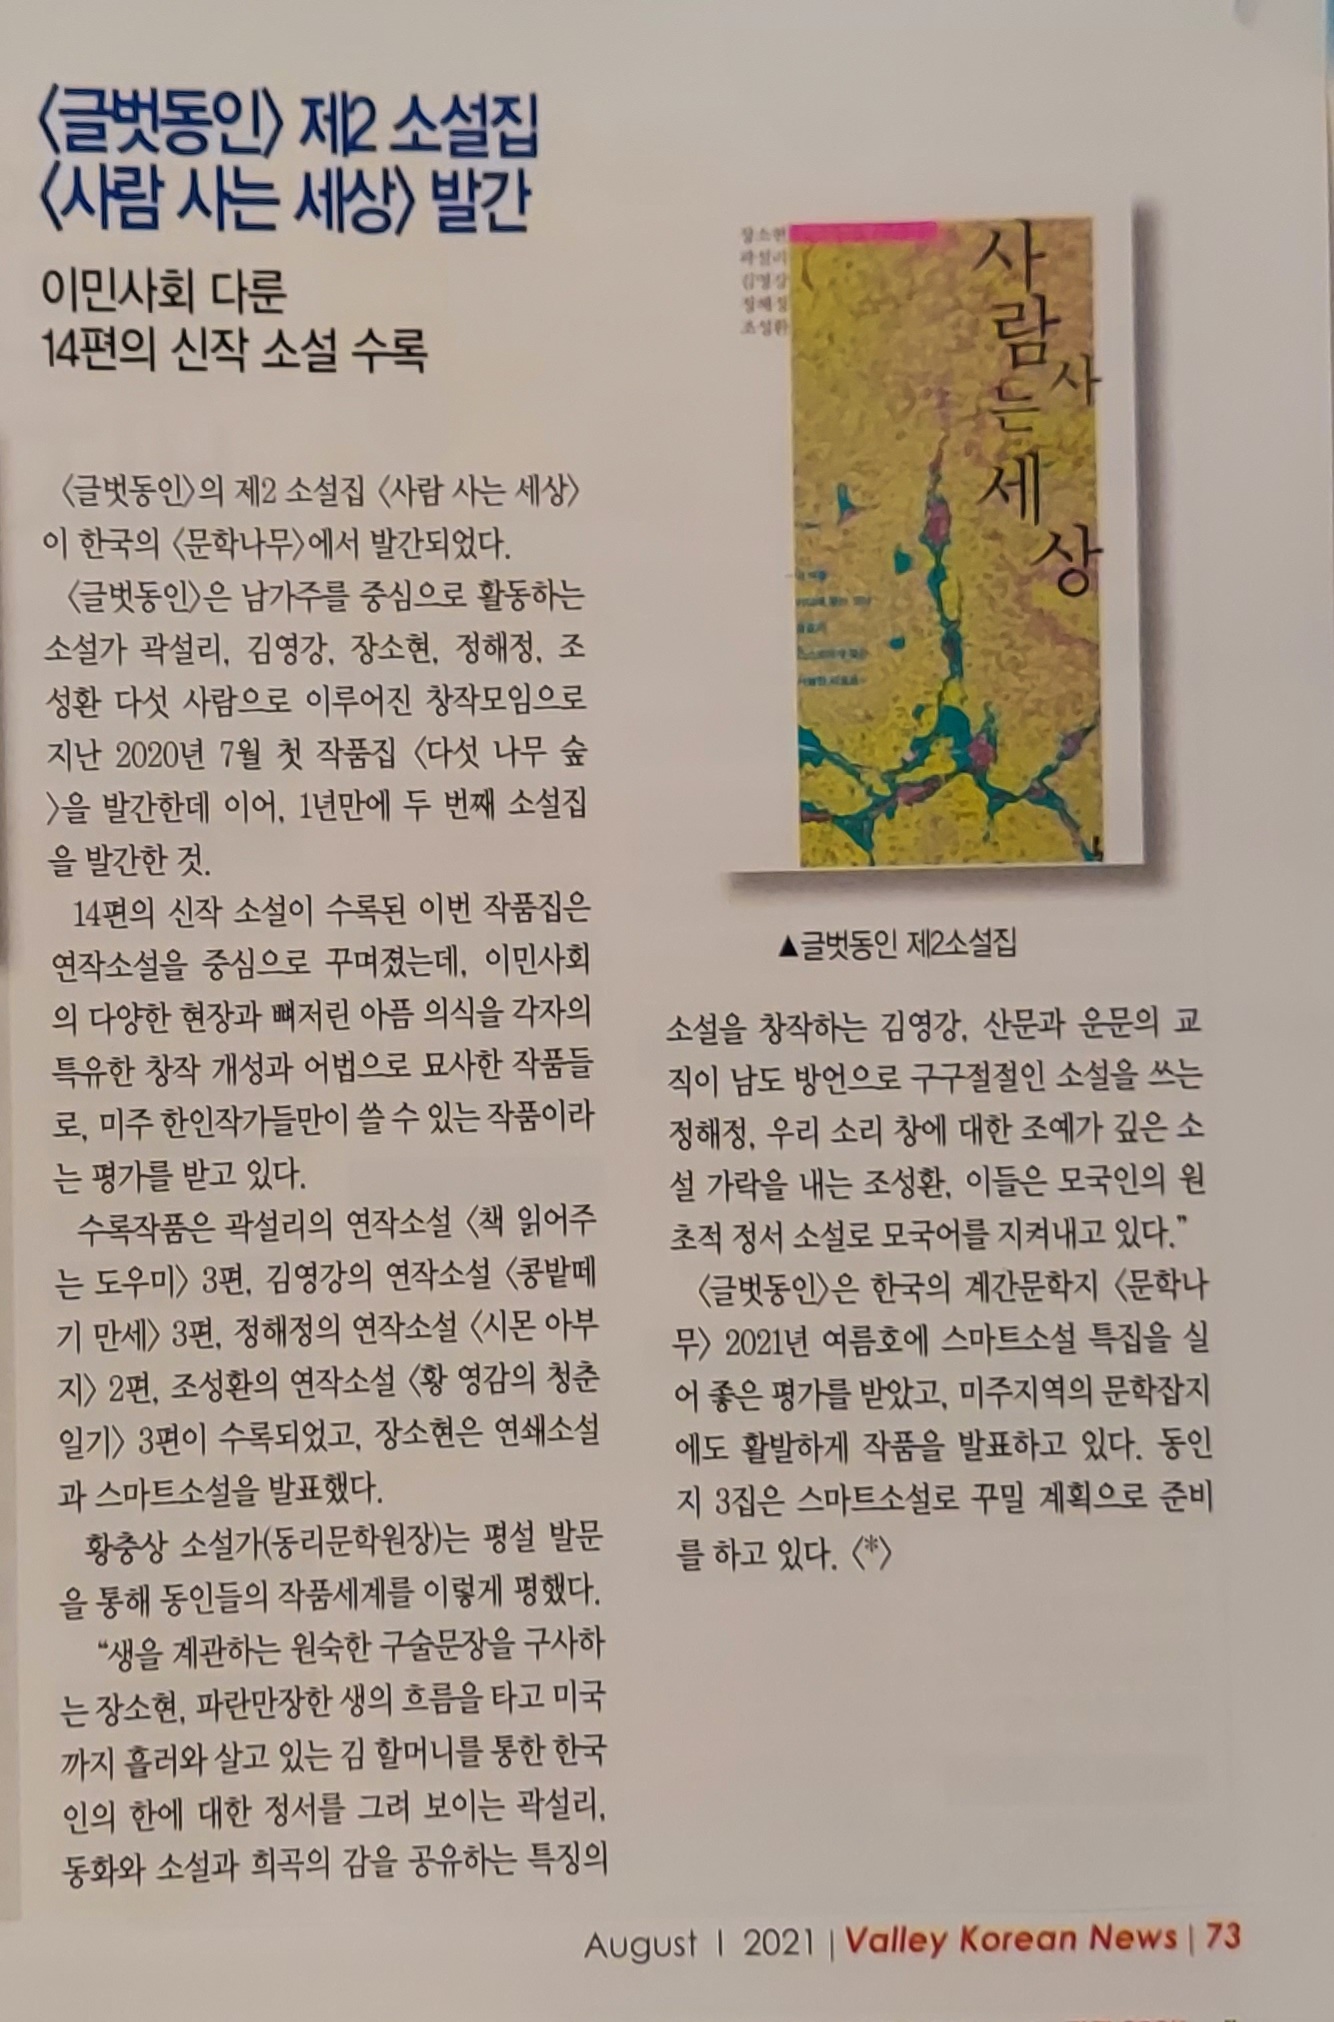 〈글벗동인〉 제2 소설집
〈사람 사는 세상〉 발간
이민사회 다룬
14편의 신작 소설 수록
〈글벗동인〉의 제2 소설집 〈사람 사는 세상〉
이 한국의 〈문학나무〉에서 발간되었다.
〈글벗동인〉은 남가주를 중심으로 활동하는
소설가 곽설리, 김영강, 장소현, 정해정, 조
성환 다섯 사람으로 이루어진 창작모임으로
지난 2020년 7월 첫 작품집 〈다섯 나무 숲
〉을 발간한데 이어, 1년만에 두 번째 소설집
을 발간한 것.
14편의 신작 소설이 수록된 이번 작품집은
연작소설을 중심으로 꾸며졌는데, 이민사회
의 다양한 현장과 뼈저린 아픔 의식을 각자의
특유한 창작 개성과 어법으로 묘사한 작품들
로, 미주 한인작가들만이 쓸 수 있는 작품이라
는 평가를 받고 있다.
수록작품은 곽설리의 연작소설 〈책 읽어주
는 도우미〉 3편, 김영강의 연작소설 〈콩밭떼
기 만세〉 3편, 정해정의 연작소설 〈시몬 아부
지〉 2편, 조성환의 연작소설 〈황 영감의 청춘
일기〉 3편이 수록되었고, 장소현은 연쇄소설
과 스마트소설을 발표했다.
황충상 소설가(동리문학원장)는 평설 발문
을 통해 동인들의 작품세계를 이렇게 평했다.
“생을 계관하는 원숙한 구술문장을 구사하
는 장소현, 파란만장한 생의 흐름을 타고 미국
까지 흘러와 살고 있는 김 할머니를 통한 한국
인의 한에 대한 정서를 그려 보이는 곽설리,
동화와 소설과 희곡의 감을 공유하는 특징의
장소현
곽설리
김영강
정해정
조성환
사람 사는 세상
▲글벗동인 제2소설집
소설을 창작하는 김영강, 산문과 운문의 교
직이 남도 방언으로 구구절절인 소설을 쓰는
정해정, 우리 소리 창에 대한 조예가 깊은 소
설 가락을 내는 조성환, 이들은 모국인의 원
초적 정서 소설로 모국어를 지켜내고 있다.”
〈글벗동인〉은 한국의 계간문학지 〈문학나
무〉 2021년 여름호에 스마트소설 특집을 실
어 좋은 평가를 받았고, 미주지역의 문학잡지
에도 활발하게 작품을 발표하고 있다. 동인
지 3집은 스마트소설로 꾸밀 계획으로 준비
를 하고 있다. 〈*〉
August | 2021 | Valley Korean News | 73